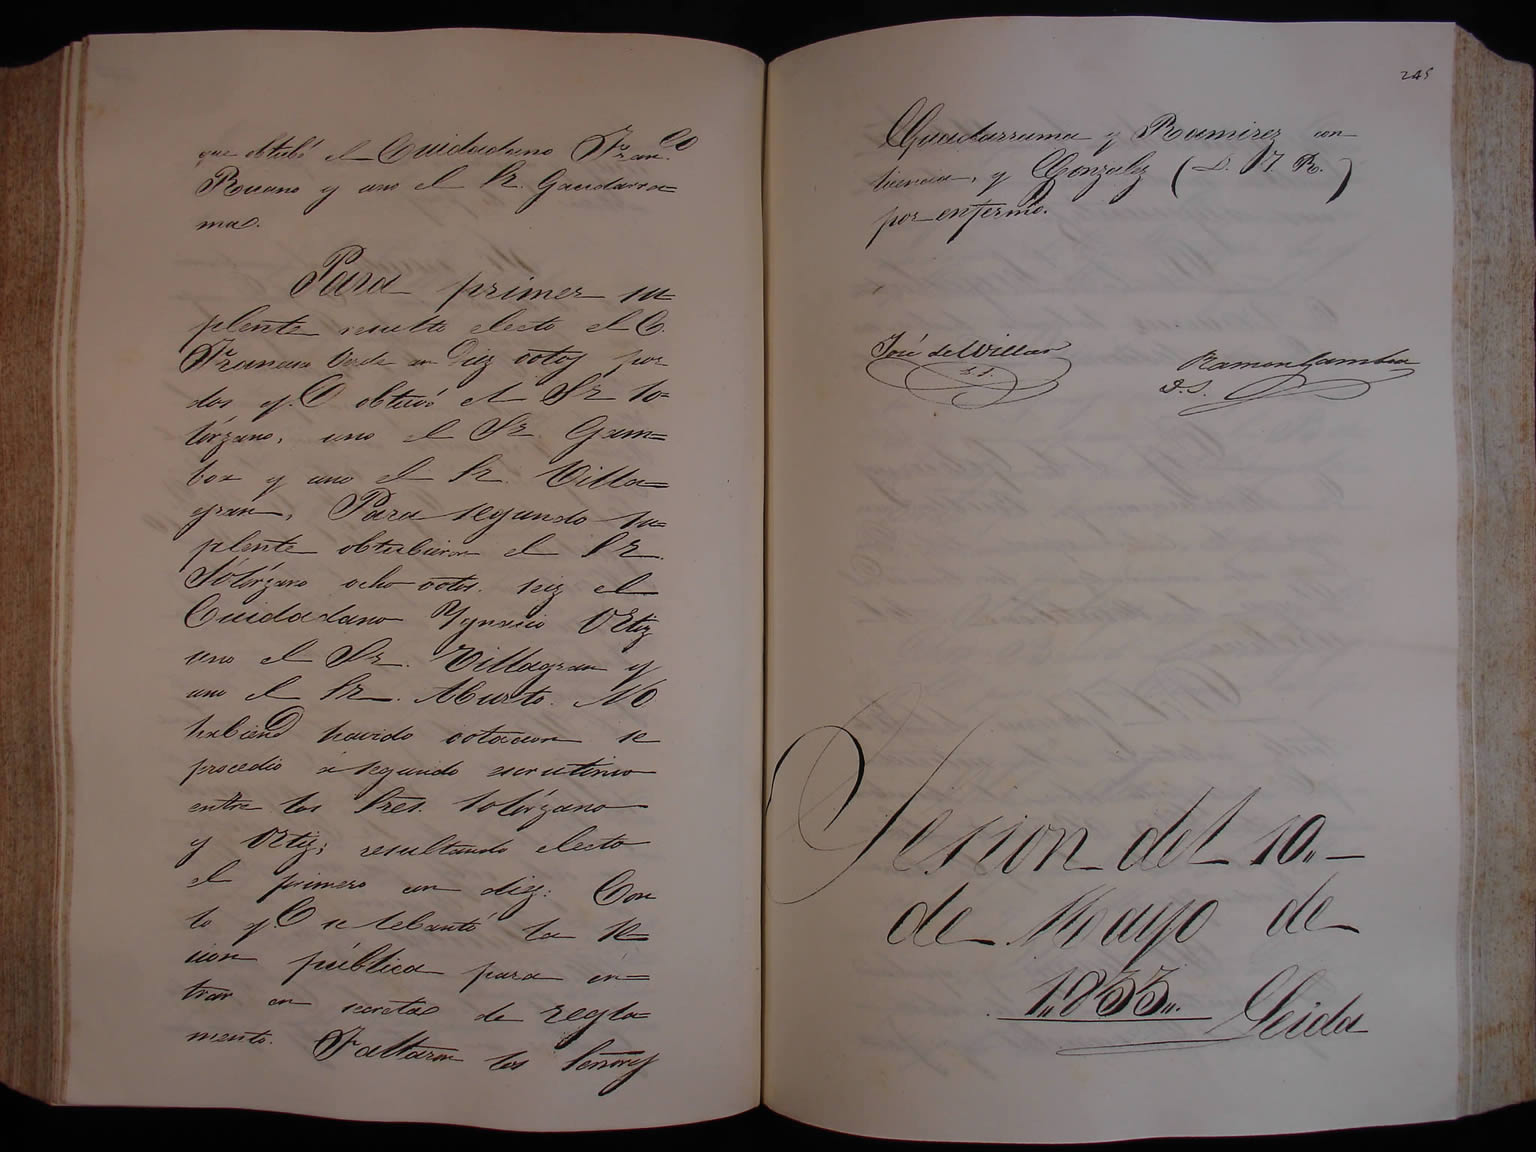 que obtubó el Cuidadano Fran.co
Romano y uno el Sr. Gaudarra=
mas.
Para primer su=
plente resulto electo el C.
Francisco Verde con Diez votos por
dos q.e obtuvó el Sr So=
lórzano, uno el Sr Gam=
boa y uno el Sr. Villa=
gran, Para segundo su=
plente obtubieron el Sr.
Sólórzano ocho votos. seiz el
Cuidadano Ygnacio Ortiz
uno el Sr. Villagran y
uno el Sr. Aburto. No
habiend havido votacion se
procedio a segundo escrutinio
entre los Sres. Solórzano
y Ortiz; resultando electo
el primero con diez: Con
lo q.e se lebantó la se
cion pública para én=
trar en secreta de regla=
mento. Faltaron los Señores
245
Guadarrama y Ramirez con
licencia, y Gonzalez ( D. M R. )
por enfermo.
José de Villar
D. S.
Ramon Gamboa
D. S.
Sesion del 10„
de Mayo de
1„833„.
Leida